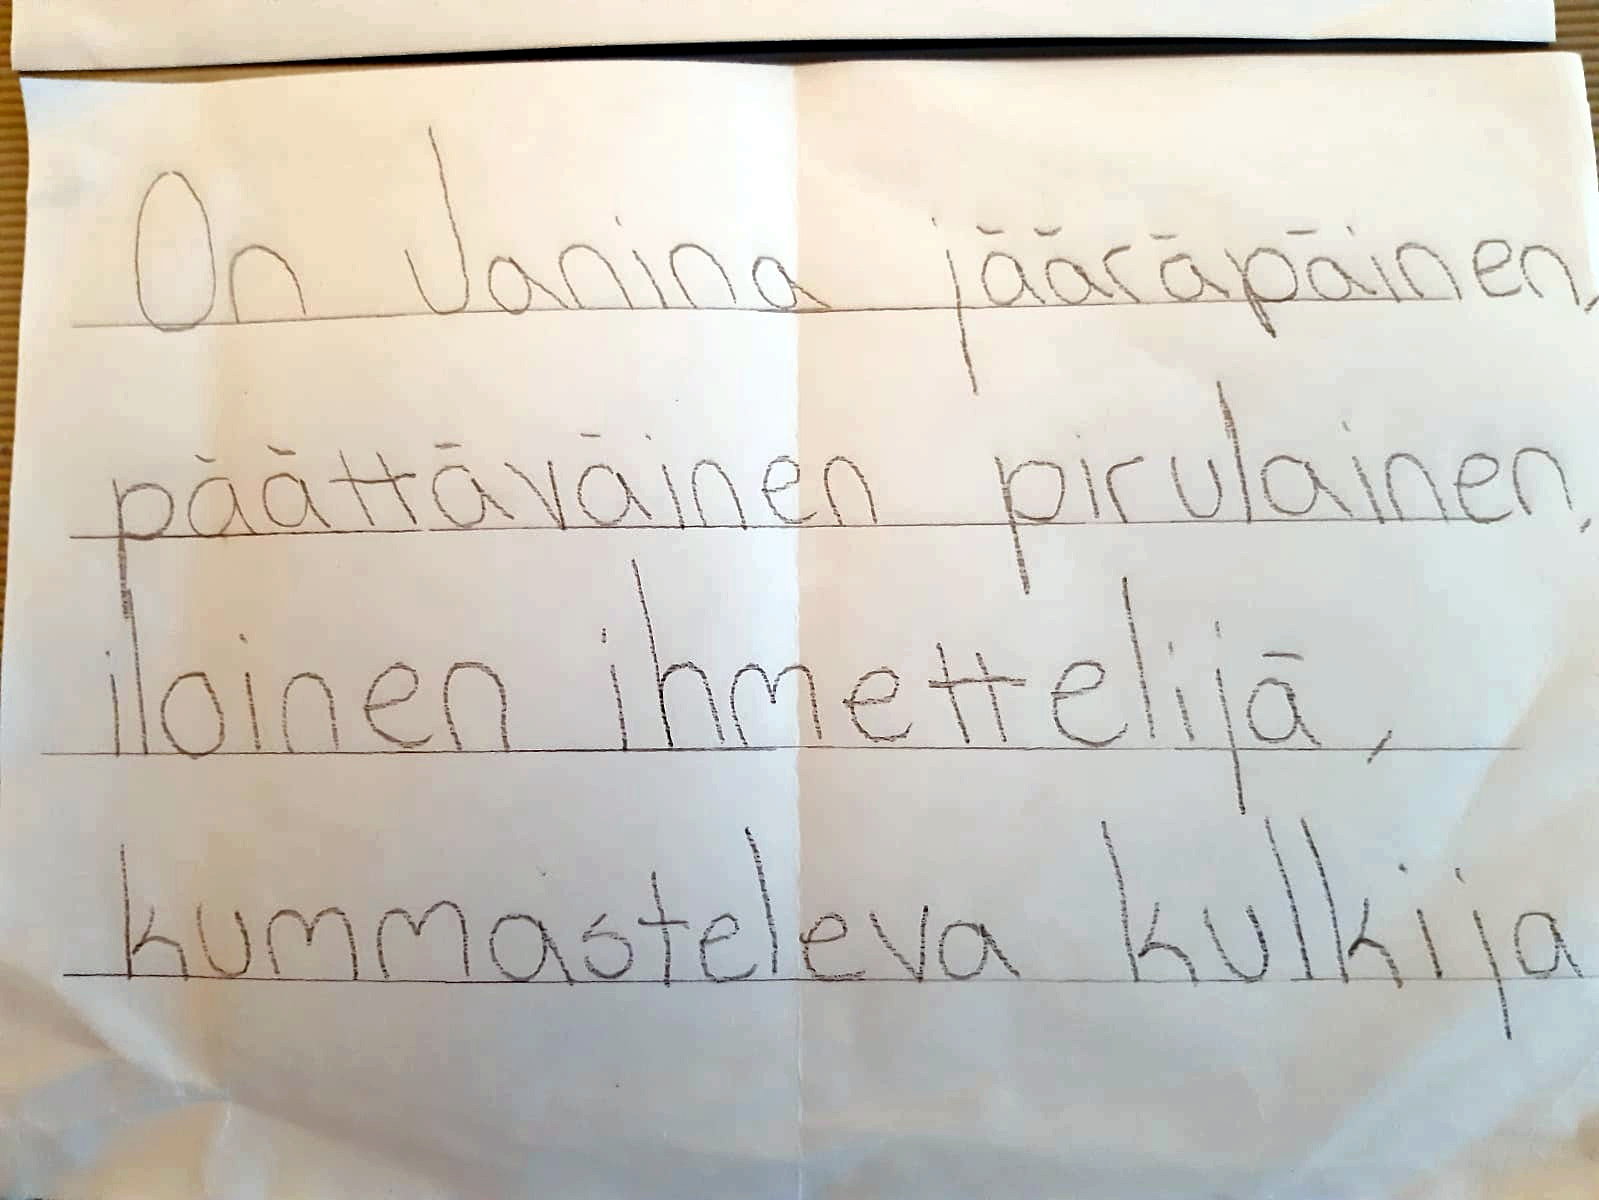 On Janina jääräpäinen,
päättäväinen pirulainen,
iloinen ihmettelijä,
kummasteleva kulkija